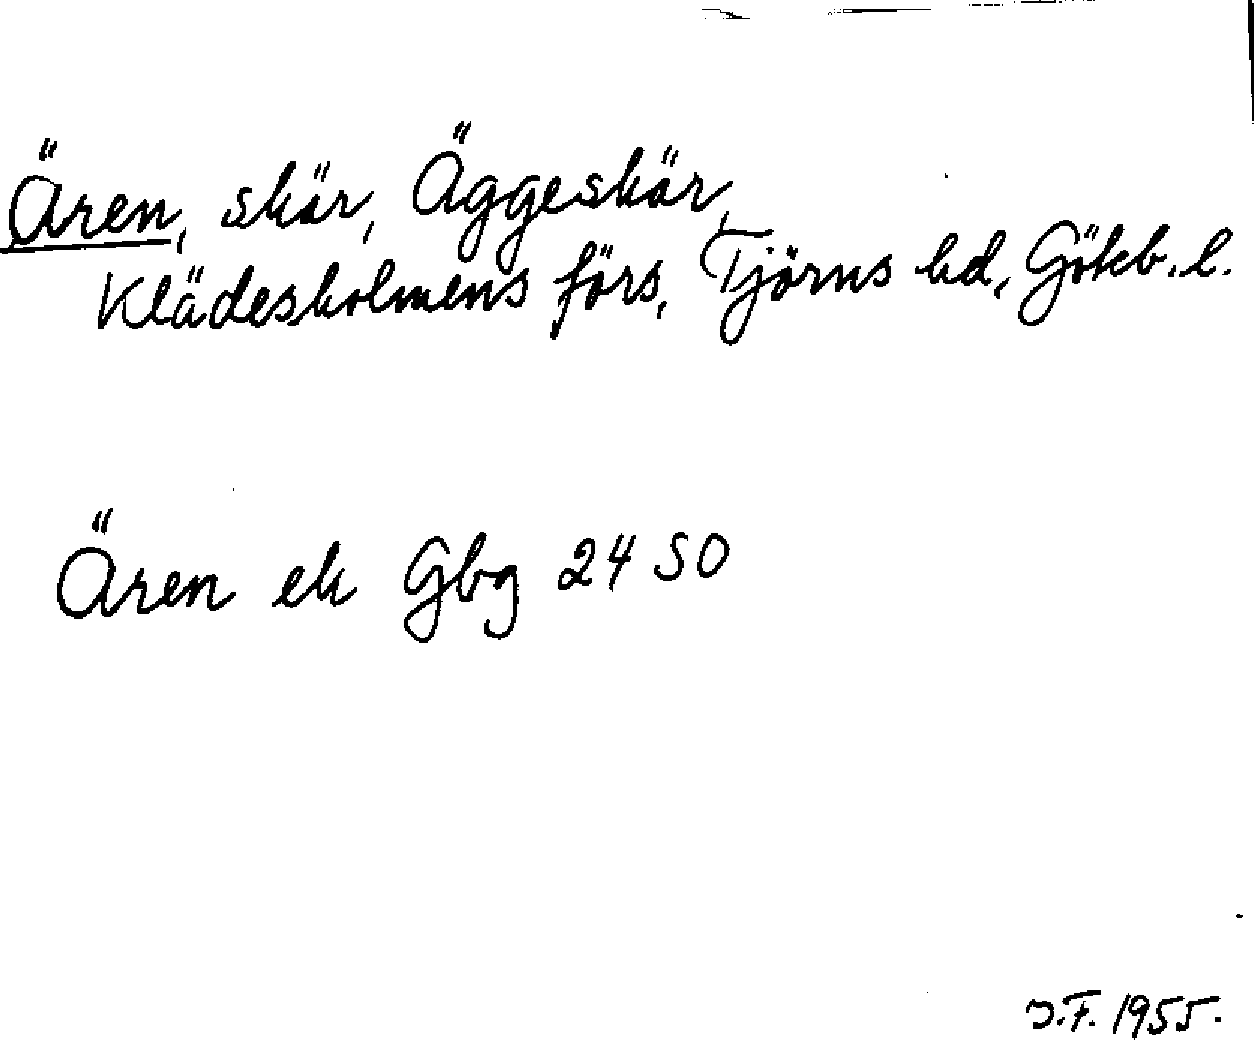 Ären, skär, Äggeskär,
Klädesholmens förs, Tjörns hd, Gökb. l.
Ären ek Gbg 24 SO
J.F. 1955.